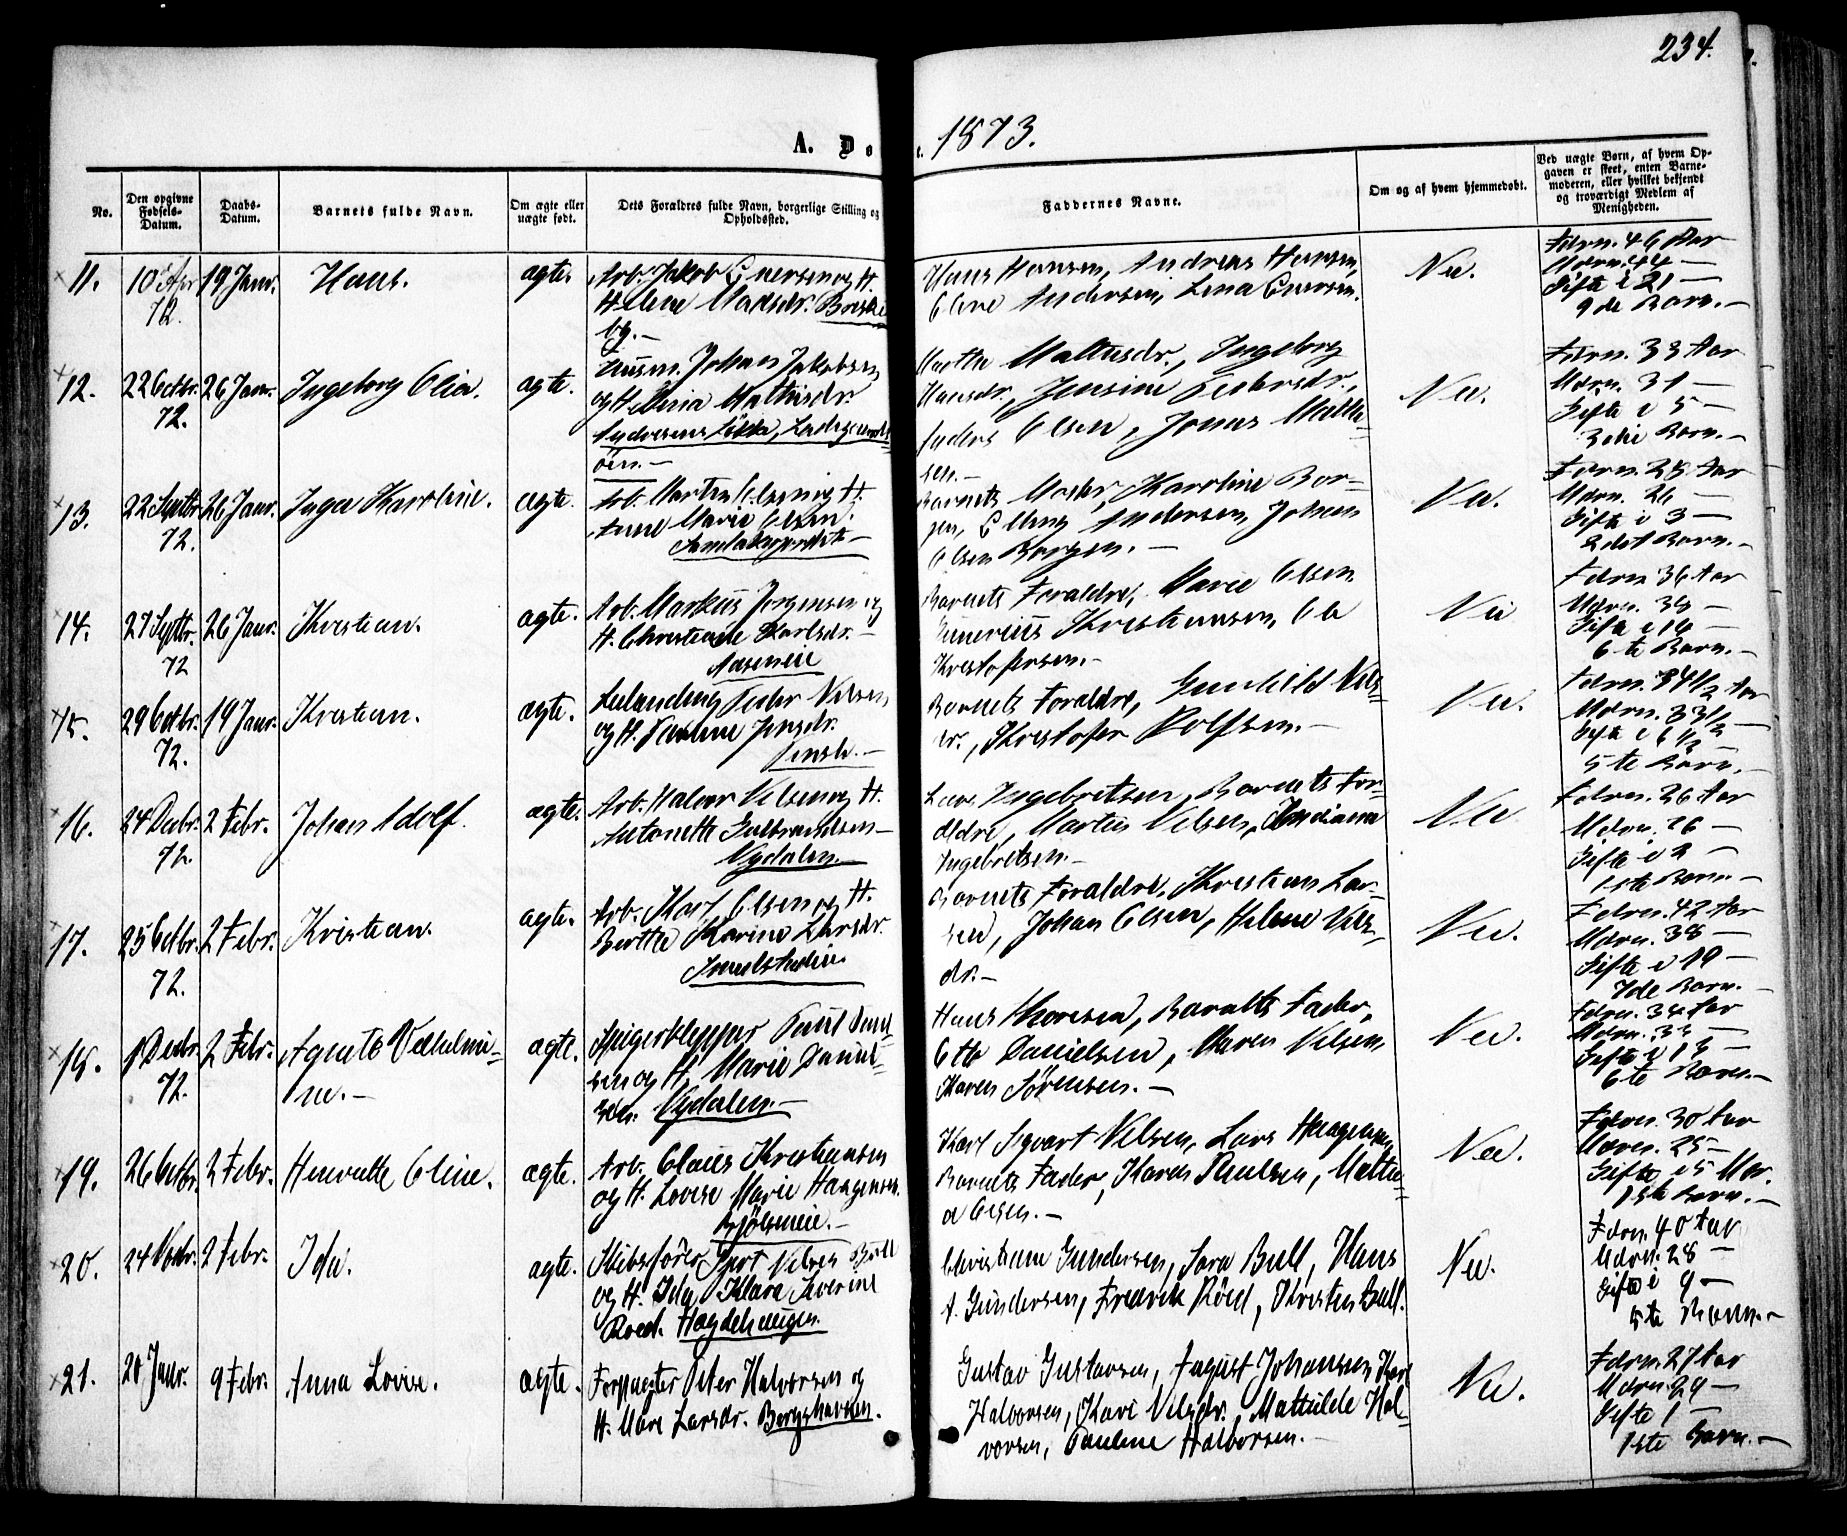 234.
A. Dø
e. 1873.
No.
Den opgivne Fødsels-Datum.
Daabs-Datum.
Barnets fulde Navn.
Om ægte eller uægte født.
Dets Forældres fulde Navn, borgerlige Stilling og Opholdssted.
Faddernes Navne.
Om og af hvem hjemmedøbt.
Ved uægte Børn, af hvem Opgaven er skeet, enten Barnemoderen, eller hvilket bekjendt og troværdigt Medlem af Menigheden.
11. 10 Apr 72. 19 Janr. Hans. ægte. Arb. Jakob Enersen og H.
Helene
Hans Hansen, Andreas Hansen,
Oline Andersen, Lina Enersen.
Nei.
Fdrn. 46 Aar
Mdrn. 44 —
Gifte i 21 —
9de Barn.—
12. 22 Octbr. 72. 26 Janr. Ingeborg Olia. ægte. Husm. Johan Jakobsen
og H. Maria Mathisdr.
Andersens Løkke,
øen.—
Marthe Mathisdr., Ingeborg
Hansdr., Jensine Pedersdr.,
Anders Olsen, Jonas Mathi-
sen.—
Nei.
Fdrn. 33 Aar
Mdrn. 31 —
Gifte i 5 —
3die Barn.—
13. 22 Septbr. 72. 26 Janr. Inga Karoline. ægte. Arb. Martin Olsen og H.
Anne Marie Olsen.
Barnets Moder, Karoline Bor-
gen, Elling Andersen, Johan
Olsen Borgen.—
Nei.
Fdrn. 28 Aar
Mdrn. 26 —
Gifte i 3 —
2det Barn.—
14. 27 Septbr. 72 26 Janr. Kristian. ægte. Arb. Markus Jørgensen og
H. Christiane Karlsdr.—
Aaseneie
Barnets Forældre, Marie Olsen,
Gunerius Kristiansen, Ole
Kristofersen.—
Nei
Fdrn 36 Aar
Mdrn. 35 —
6te Barn.—
15. 29 Octbr. 72. 19 Janr. Kristian. ægte. Leilænding Peder Nilsen,
og H. Pauline Jensdr.
Barnets Forældre, Gunhild Niels-
dr., Kristofer Rolfsen.—
Nei.
Fdrn. 34 1/2 Aar
Mdrn. 33 1/2 —
Gifte i 6 1/2 —
5te Barn.—
16. 24 Decbr. 72. 2 Febr. Johan Adolf. ægte. Arb. Halvor Nilsen og H.
Antonette Gulbrandsen—
Nydalen.—
Lars Ingebretsen, Barnets For-
ældre, Martin Nilsen, Indiana
Ingebretsen.—
Nei
Fdrn. 26 Aar
Mdrn. 26 —
Gifte i 2 —
1ste Barn—
17. 25 Octbr. 72. 2 Febr. Kristian. ægte. Arb. Karl Olsen og H.
Berthe Karine Larsdr.
Barnets Forældre, Kristian Lar-
sen, Johan Olsen, Helene Niels-
dr.—
Nei.
Fdrn. 42 Aar
Mdrn. 38 —
Gifte i 19 —
7de Barn.—
18. 1 Decbr. 72. 2 Febr. Agnete Vilhelmi-
ne.— ægte. Spigerklipper Paul Dani-
sen og H. Marie Daniel-
sen. Nydalen.—
Hans Thoresen, Barnets Fader,
Otto Danielsen, Maren Nilsen,
Karen Sørensen.—
Nei.
Fdrn. 34 Aar
Mdrn. 35 —
Gifte i 13 —
6te Barn.—
19. 26 Octbr. 2 Febr. Henriette Oline. ægte. Arb. Claus Kristiansen
og H. Lovise Marie Haagensen.
Bjølseneie.—
Karl Sigvart Nilsen, Lars Haagensen,
Barnets Fader, Karen Paulsen, Mathi-
a Olsen.—
Nei.
Fdrn. 30 Aar
Mdrn. 25 —
Gifte i 5 Mdr.
1ste Barn.—
20. 24 Novbr. 2 Febr. Ida. ægte. Skibsfører Gert Nilsen Bull
og H. Ida Klara Severine
Roed. Hægdehaugen.
Christiane Gundersen, Sara Bull, Hans
A. Gundersen, Fredrik Röed, Kristen Bull.
Nei.
Fdrn. 40 Aar
Mdrn. 28 —
Gifte i 9 —
5te Barn.—
21. 20 Janr. 9 Febr. Anna Lovise. ægte. Forpagter Peter Halvorsen og
H. Mari Larsdr. Bergshavnen.
Gustav Gustavsen, August Johansen, Karl
Halvorsen, Kari Nilsdr., Mathilde Hal-
vorsen, Pauline Halvorsen.—
Nei.
Fdrn. 27 Aar
Mdrn. 29 —
Gifte 1 —
1ste Barn.—